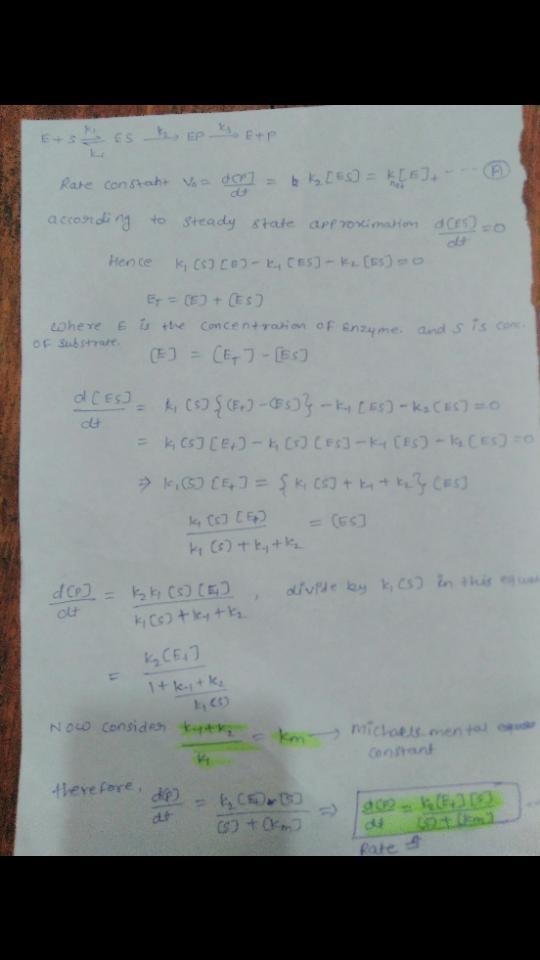 E + S ⇌ ES →k₂ EP →k₃ E+P
Rate constant V₀ = d[P]/dt = k₂[ES] = k[E]ₜ ----
according to steady state approximation d[ES]/dt = 0
Hence k₁[S][E] - k₋₁[ES] - k₂[ES] = 0
E_T = [E] + [ES]
Where E is the concentration of Enzyme. and S is conc.
of substrate.
[E] = [E_T] - [ES]
d[ES]/dt = k₁[S]{[Eₜ] - [ES]} - k₋₁[ES] - k₂[ES] = 0
= k₁[S][Eₜ] - k₁[S][ES] - k₋₁[ES] - k₂[ES] = 0
⇒ k₁[S][Eₜ] = {k₁[S] + k₋₁ + k₂}[ES]
k₁[S][Eₜ] / k₁[S] + k₋₁ + k₂ = [ES]
d[P]/dt = k₂k₁[S][Eₜ] / k₁[S] + k₋₁ + k₂ , divide by k₁[S] in this equa
= k₂[Eₜ] / 1 + k₋₁ + k₂ / k₁[S]
Now consider k₋₁+k₂ / k₁ = km → Michaels mental
constant
therefore, d[P]/dt = k₂[Eₜ] [S] / [S] + [km] ⇒ d[P]/dt = k₂[Eₜ][S] / [S] + [km] --
Rate